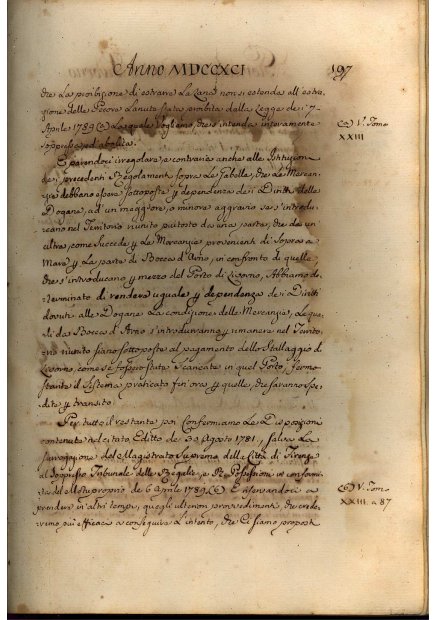 Anno MDCCXCI
197
che La proibizione di estrarre La Lana non si estenda all'estra-
zione delle Pecore Lanute stata proibita dalla Legge de i 7
Aprile 1789 (a) La quale Vogliamo, che s'intenda interamente
soppressa, ed abolita.
(a) V. Tomo
XXIII
E parendoci irregolare, e contrario anche alle Istituzioni
de i precedenti Regolamenti sopra Le Gabelle, che Le Mercan-
zie debbano essere sottoposte per dependenza de i Diritti delle
Dogane, ad un maggiore, o minore aggravio se s'introdu-
cono nel Territorio riunito piuttosto da una parte, che da un'
altra, come succede per Le Mercanzie provenienti di Sopra a
Mare per La parte di Bocca d'Arno, in confronto di quelle,
che s'introducano per mezzo del Porto di Livorno, Abbiamo de-
terminato di rendere uguale per dependenza de i Diritti
dovuti alle Dogane La condizione delle Mercanzie, Le qua-
li da Bocca d'Arno s'introdurranno per rimanere nel Territo-
rio riunito siano sottoposte al pagamento dello Stallaggio di
Livorno, come se fossero state Scaricate in quel Porto, fermo
stante il Sistema praticato fin'ora per quelle, che saranno spe-
dite per transito.
Per tutto il restante poi Confermiamo Le Disposizioni
contenute nel citato Editto de 30 Agosto 1781, salva La
surrogazione del Magistrato Supremo della Città di Firenze
al Soppresso Tribunale delle Regalie, e RR. Possessioni in conformi-
tà del Motuproprio de 6 Aprile 1789 (b) E riservandoci a
prendere in altri tempi, quegli ulteriori provvedimenti, che crede-
remo più efficaci a conseguire L'intento, che Ci siamo proposti
(b) V. Tomo
XXIII. a 87